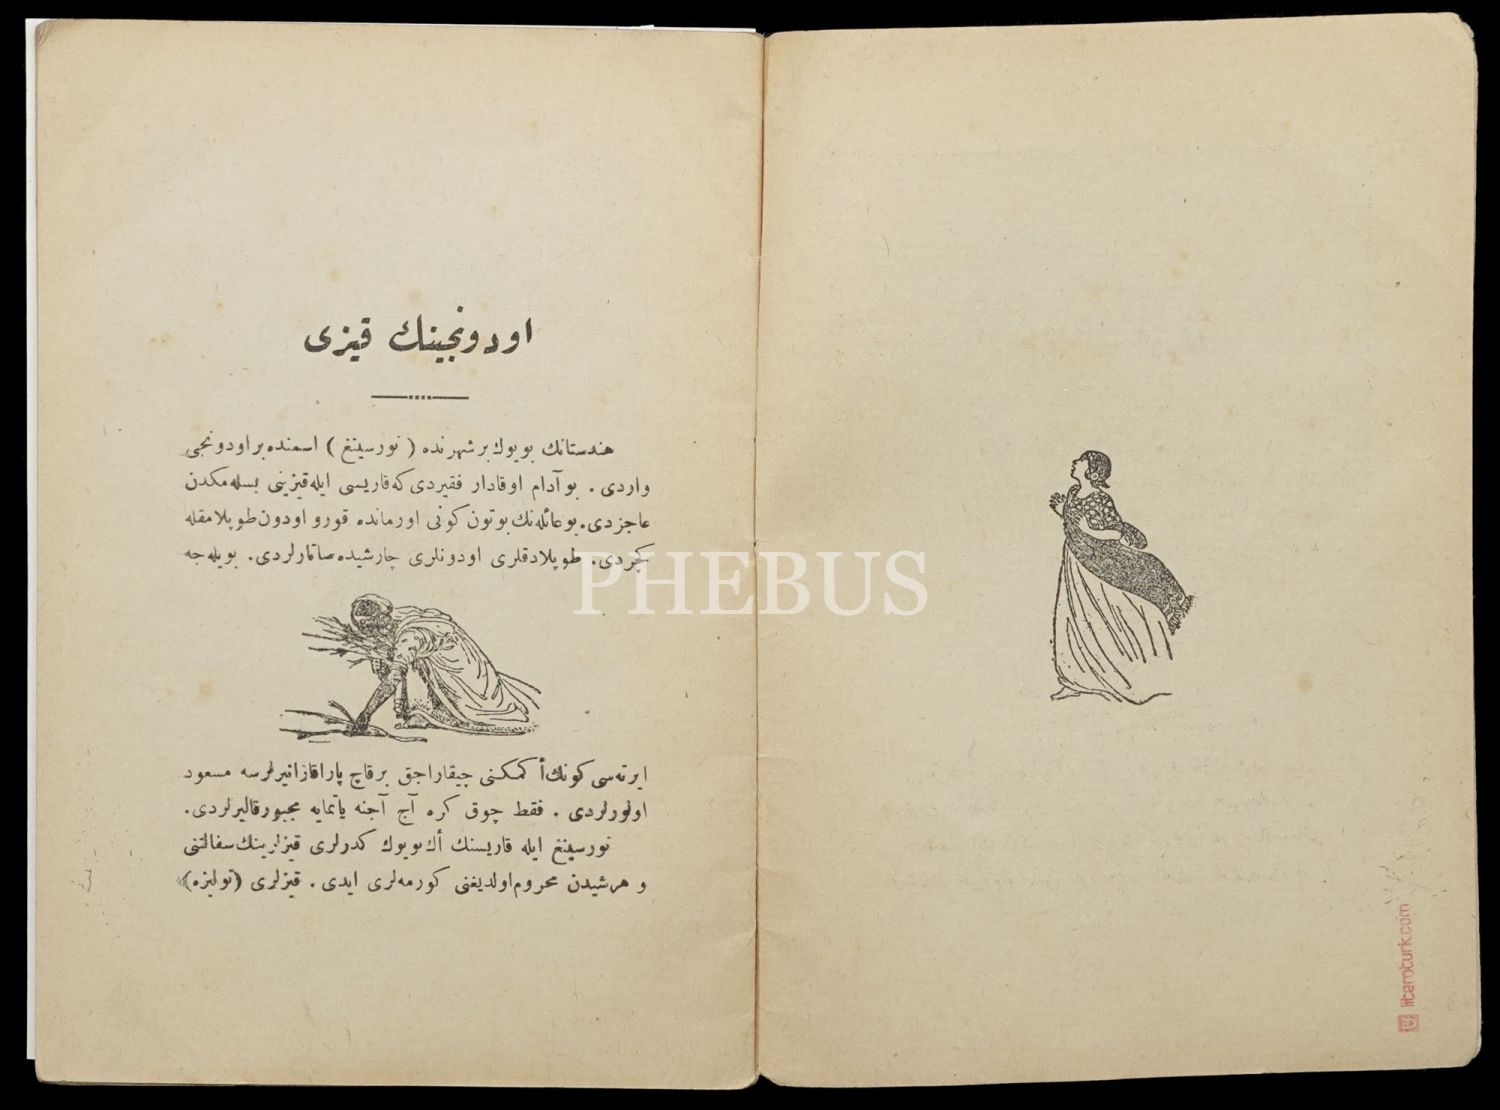 اودونجینك قیزی
هندستانك بویوك بر شهرنده ( نورسینغ ) اسمنده بر اودونجی
واردی . بو آدام اوقادار فقیردی که قاریسی ایله قیزینی بسله مکدن
عاجزدی. بو عائله نك بوتون کونی اورمانده قورو اودون طوپلامقله
کچردی. طوپلادقلری اودونلری چارشیده صاتارلردی. بویله جه
ایرته سی کونك أکمکنی چیقاراجق بر قاچ پارا قازانیرلرسه مسعود
اولورلردی . فقط چوق کره آج آجنه یاتمایه مجبور قالیرلردی.
نورسینغ ایله قاریسنك أك بویوك کدرلری قیزلرینك سفالتنی
و هر شیدن محروم اولدیغنی کورمه لری ایدی . قیزلری (تولیزه)
PHEBUS
literaturk.com